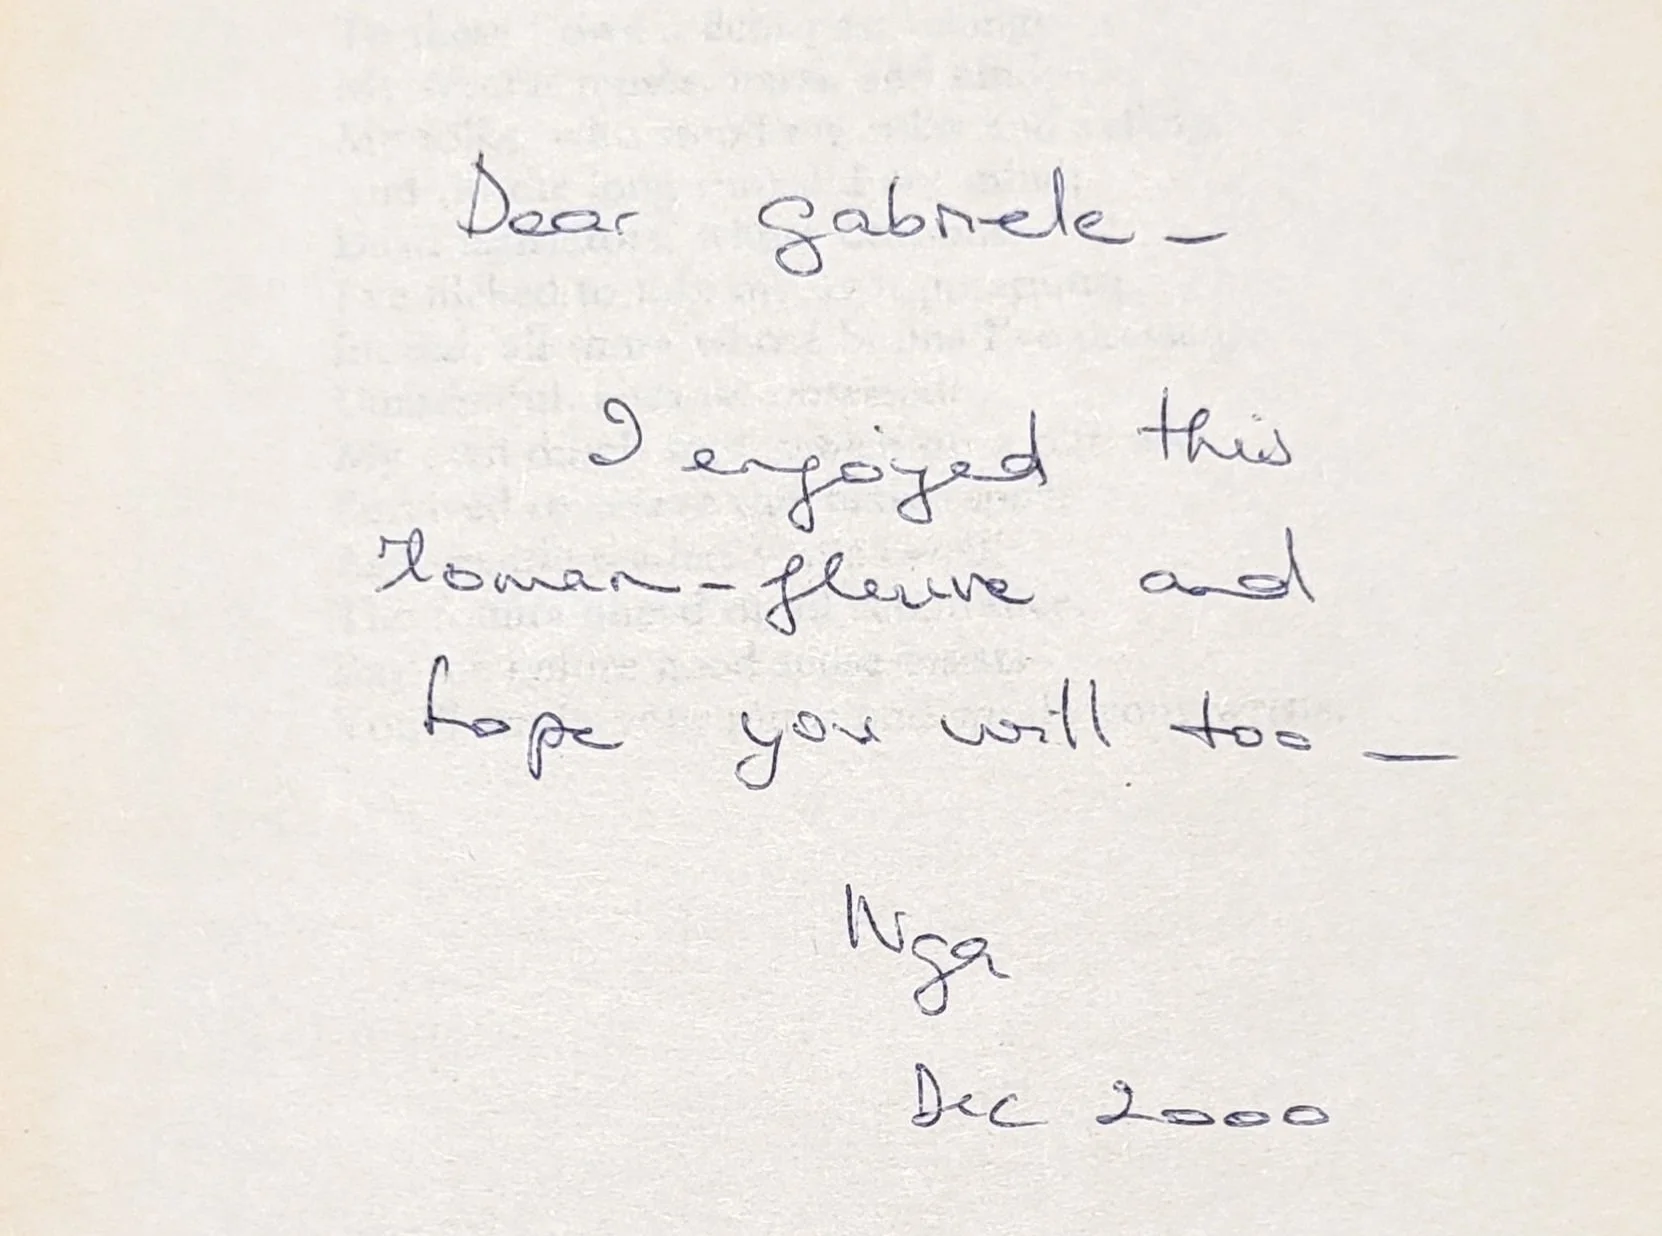 Dear Gabriele –
I enjoyed this
roman-fleuve and
hope you will too —
Nga
Dec 2000